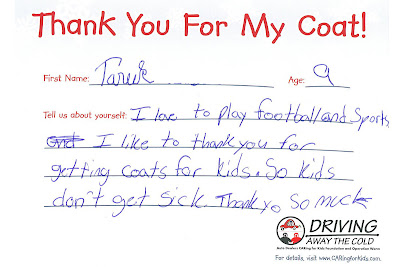 Thank You For My Coat!
First Name: Tarik Age: 9
Tell us about yourself: I love to play football and sports
I like to thank you for
getting coats for kids. So kids
don't get sick. Thank yo so much
DRIVING
AWAY THE COLD
Auto Dealers CARing for Kids Foundation and Operation Warm
For details, visit www.CARingforKids.com.